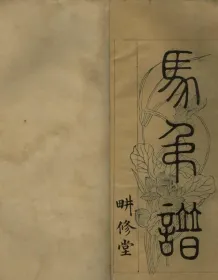 馬弔譜
畊修堂